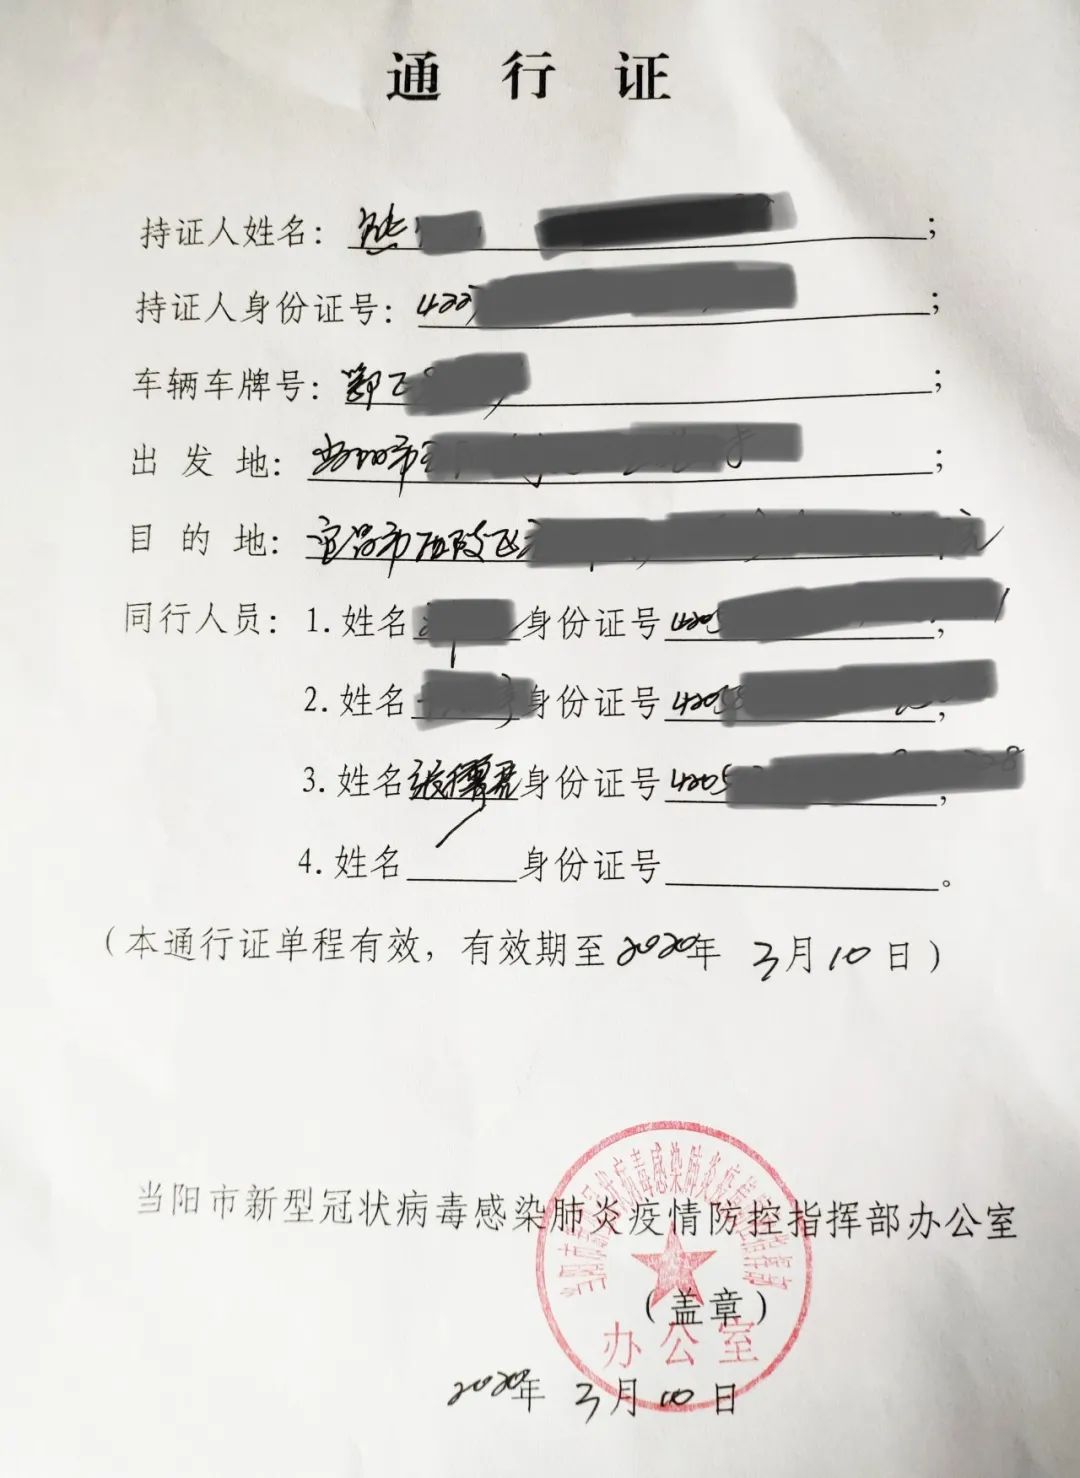 通行证
持证人姓名：熊 ；
持证人身份证号：422 ；
车辆车牌号：鄂E ；
出发地：当阳市 ；
目的地：宜昌市西陵区 院
同行人员：1.姓名 身份证号420 ；
2.姓名 身份证号4205 ；
3.姓名张 身份证号4205 28；
4.姓名 身份证号 。
（本通行证单程有效，有效期至2020年 3月10日）
当阳市新型冠状病毒感染肺炎疫情防控指挥部办公室
（盖章）
当阳市新型冠状病毒感染肺炎疫情防控指挥部
办公室
2020年 3月10日